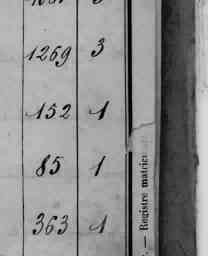 1269 3
152 1
85 1
363 1
— Registre matric